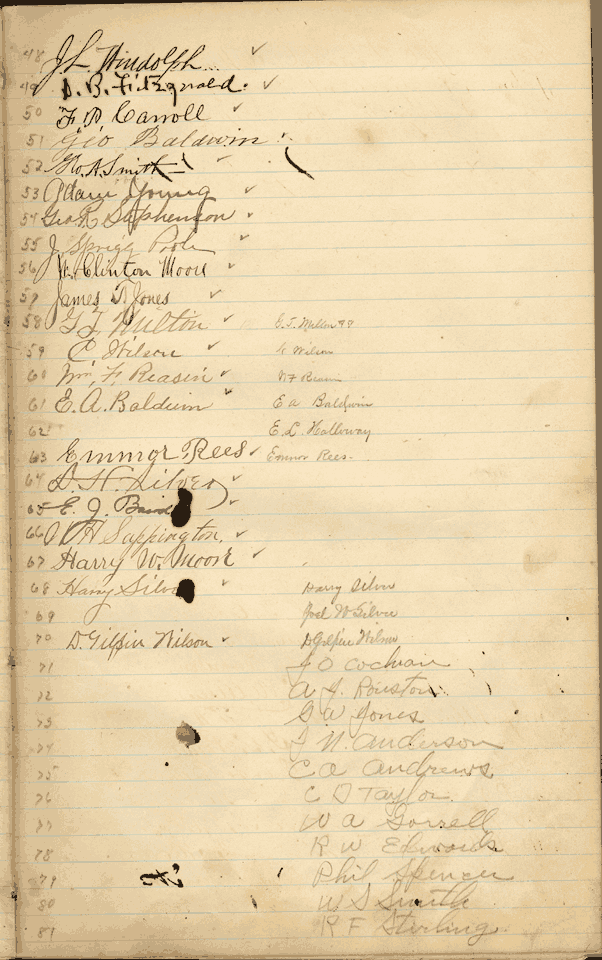 48 J. L. Windolph
49 D. B. Fitzgerald.
50 F D Carroll
51 Geo Baldwin
52 Geo. A. Smith
53 Adam Young
54 Geo R Stephenson
55 J Sprigg Poole
56 W. Clinton Moore
57 James T Jones
58 G T Milton G. T. Milton
59 C. Wilson Wilson
60 Wm. F. Reasin W F Reasin
61 E. A. Baldwin E a Baldwin
62 E. L. Halloway
63 Emmor Rees Emmor Rees.
64 S. H. Silver
65 E. J.
66 H Sappington,
67 Harry W. Moore
68 Harry Silver Harry Silver
69 Joel W Silver
70 D. Gilpin Wilson D Gilpin Wilson
71 J O Cochran
72 A J. Rouston
73 G W Jones
74 J N. Anderson
75 C a Andrews
76 C D Taylor
77 W a Gorrell
78 R W Edwards
79 Phil Spencer
80 W S Smith
81 R F Stirling